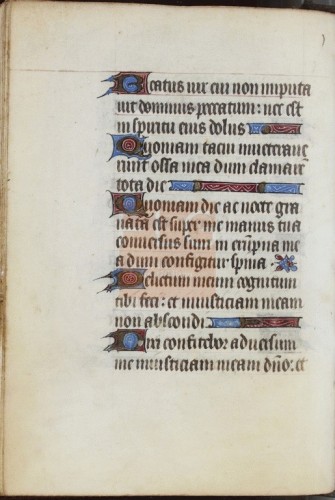 Beatus vir cui non imputa
vit dominus peccatum: nec est
in spiritu eius dolus
Quoniam tacui inveterave
runt ossa mea dum clamarem
tota die
Quoniam die ac nocte gra
vata est super me manus tua
conversus sum in erumpna me
a dum configitur spina
Delictum meum cognitum
tibi feci: et iniusticiam meam
non abscondi
Dixi confitebor adversum
me iniusticiam meam dño: et